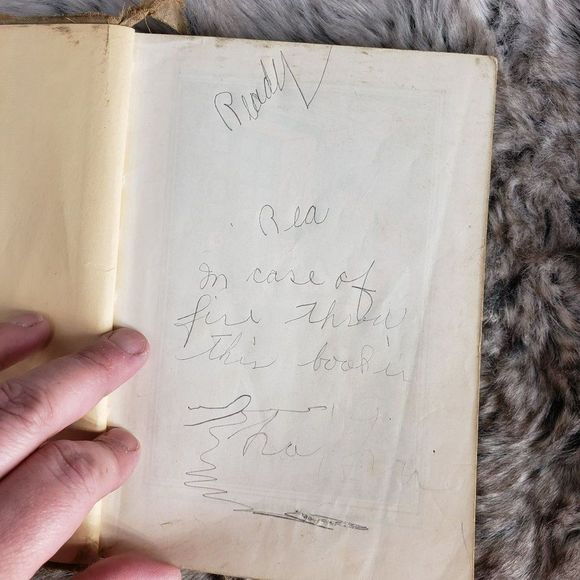 Ready
Rea
In case of
fire throw
this book in